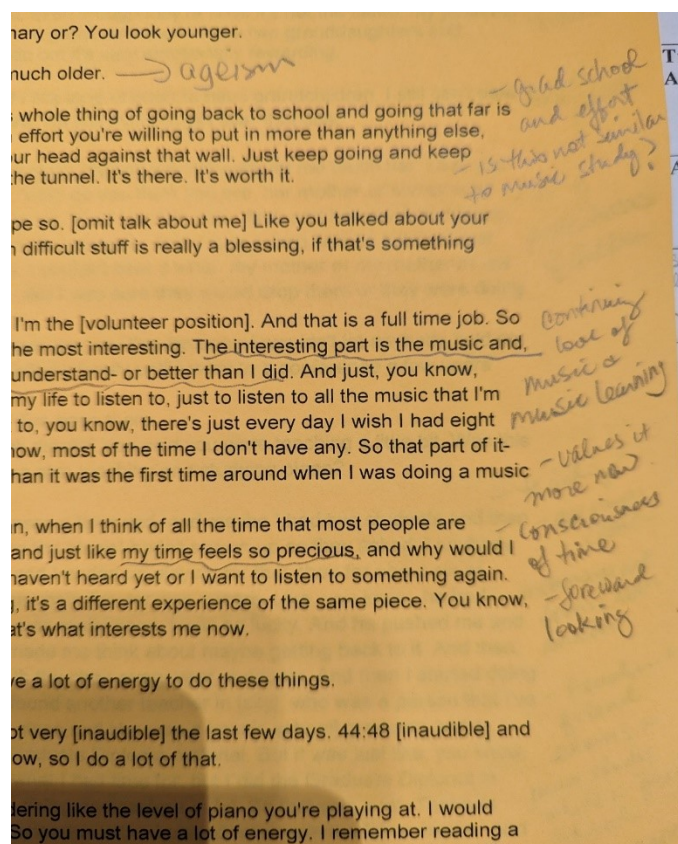 nary or? You look younger.
much older. → ageism
T
A
- grad school
and effort
- is this not similar
to music study?
whole thing of going back to school and going that far is
effort you're willing to put in more than anything else,
ur head against that wall. Just keep going and keep
the tunnel. It's there. It's worth it.
pe so. [omit talk about me] Like you talked about your
n difficult stuff is really a blessing, if that's something
I'm the [volunteer position]. And that is a full time job. So
he most interesting. The interesting part is the music and,
understand- or better than I did. And just, you know,
my life to listen to, just to listen to all the music that I'm
to, you know, there's just every day I wish I had eight
now, most of the time I don't have any. So that part of it-
han it was the first time around when I was doing a music
continuing
love of
music &
music learning
- values it
more now
n, when I think of all the time that most people are
and just like my time feels so precious, and why would I
haven't heard yet or I want to listen to something again.
, it's a different experience of the same piece. You know,
at's what interests me now.
- consciousness
of time
- foreward
looking
ve a lot of energy to do these things.
ot very [inaudible] the last few days. 44:48 [inaudible] and
ow, so I do a lot of that.
dering like the level of piano you're playing at. I would
So you must have a lot of energy. I remember reading a